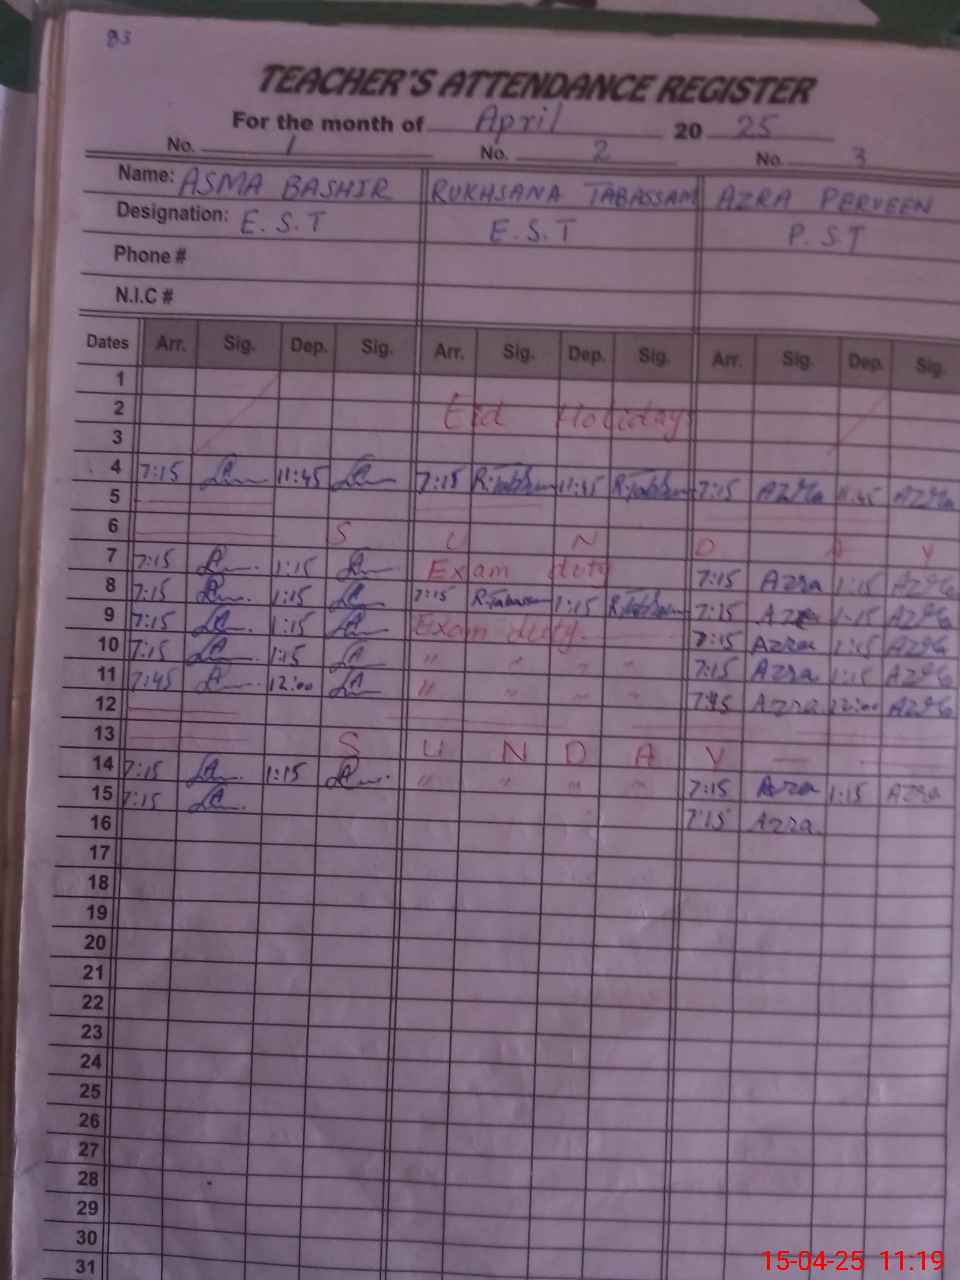 83
TEACHER'S ATTENDANCE REGISTER
For the month of April 2025
No. 1 No. 2 No. 3
Name: ASMA BASHIR RUKHSANA TABASSAM AZRA PERVEEN
Designation: E.S.T E.S.T P.S.T
Phone #
N.I.C #
Dates Arr. Sig. Dep. Sig. Arr. Sig. Dep. Sig. Arr. Sig. Dep. Sig.
1
2 Eid Holidays
3
4 7:15 11:45 7:15 11:45 7:15 Azra 11:45 Azra
5
6 S U N D A Y
7 7:15 1:15 Exam duty 7:15 Azra 1:15 Azra
8 7:15 1:15 7:15 R.Tabassam 1:15 7:15 Azra 1:15 Azra
9 7:15 1:15 Exam duty. 7:15 Azra 1:15 Azra
10 7:15 1:15 " " " " 7:15 Azra 1:15 Azra
11 7:45 12:00 " " " " 7:45 Azra 12:00 Azra
12
13 S U N D A Y
14 7:15 1:15 " " " " 7:15 Azra 1:15 Azra
15 7:15 7:15 Azra
16
17
18
19
20
21
22
23
24
25
26
27
28
29
30
31
15-04-25 11:19